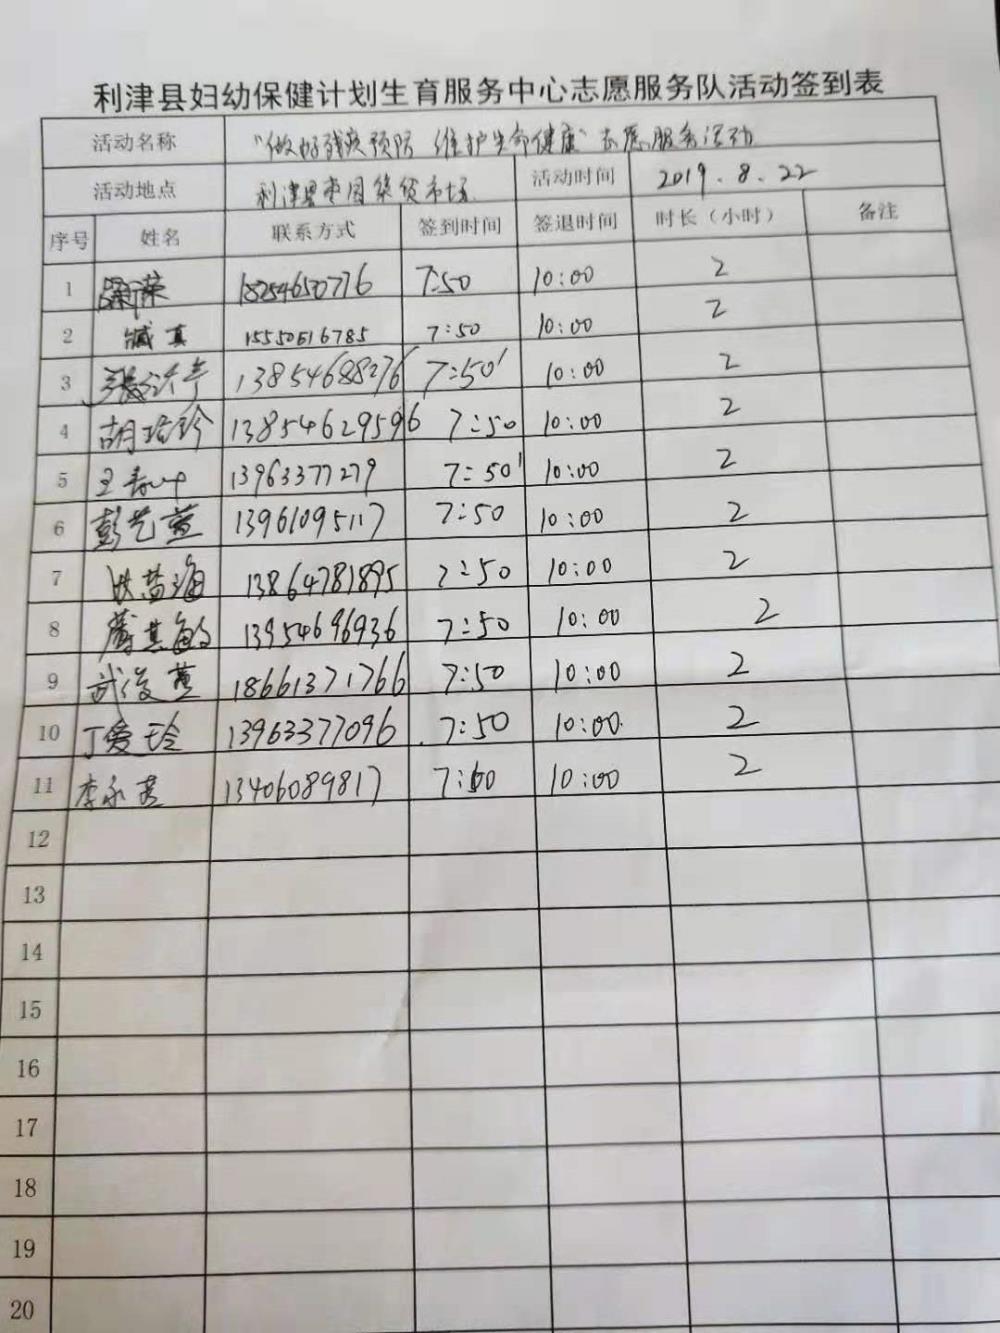 利津县妇幼保健计划生育服务中心志愿服务队活动签到表
活动名称 "做好残疾预防 维护生命健康"志愿服务活动
活动地点 利津县枣园集贸市场 活动时间 2019.8.22
序号 姓名 联系方式 签到时间 签退时间 时长（小时） 备注
1 18254650776 7:50 10:00 2
2 臧真 15550616785 7:50 10:00 2
3 13854688276 7:50' 10:00 2
4 胡培珍 13854629596 7:50 10:00 2
5 王 13963377279 7:50' 10:00 2
6 彭艺萱 13961095117 7:50 10:00 2
7 13864781895 7:50 10:00 2
8 13954696936 7:50 10:00 2
9 武俊 18661371766 7:50 10:00 2
10 丁爱玲 13963377096 7:50 10:00 2
11 李永 13406089817 10:00 2
12
13
14
15
16
17
18
19
20